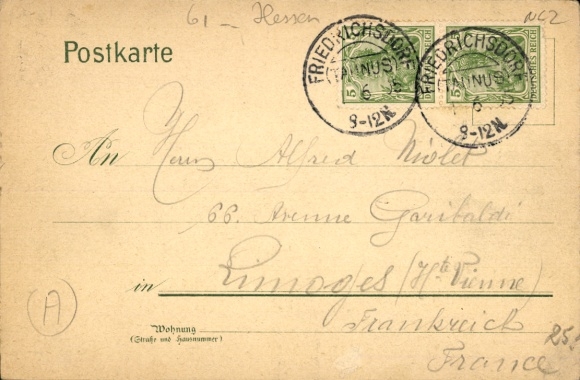 61 - Hessen
NCZ
Postkarte
FRIEDRICHSDORF
(TAUNUS)
6 5
9-12N
5
DEUTSCHES REICH
5
FRIEDRICHSDORF
(TAUNUS)
6 5
9-12N
An Herrn Alfred Niolet
66. Avenue Garibaldi
in Limoges (Hte Vienne)
Frankreich
France
A
Wohnung
(Straße und Hausnummer)